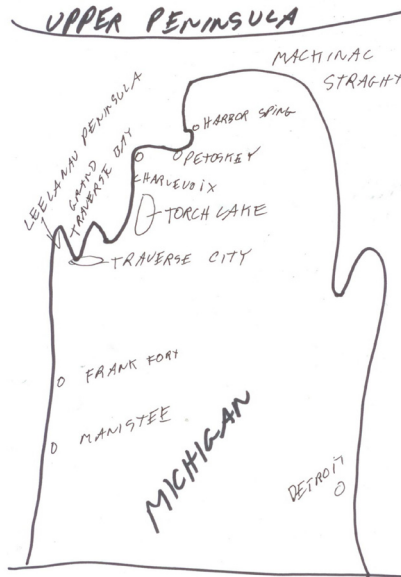 UPPER PENINSULA
MACHINAC
STRAGHT
HARBOR SPING
LEELANAU PENINSULA
GRAND
TRAVERSE BAY
PETOSKEY
CHARLEVOIX
TORCH LAKE
TRAVERSE CITY
FRANK FORT
MANISTEE
MICHIGAN
DETROIT